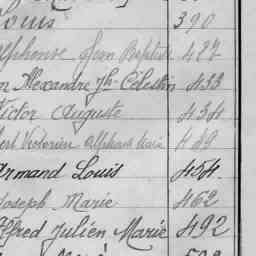 Louis 390
Alphonse Jean Baptiste 482
Alexandre Jh Célestin 433
Victor Auguste 434
Victorien Alphonse 449
Armand Louis 454
Joseph Marie 462
Alfred Julien Marie 492